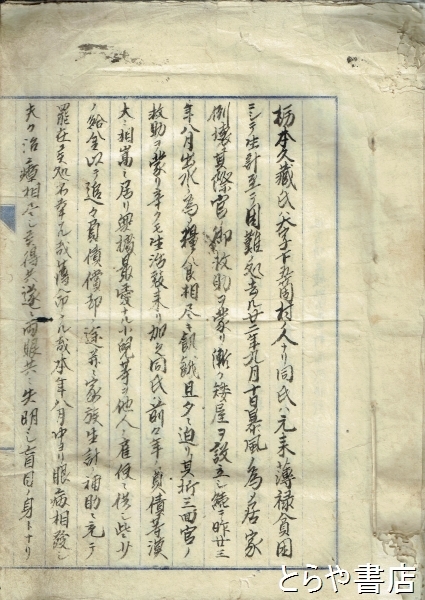 栃本久藏氏ハ大字下芥田村ノ人ナリ同氏ハ元来薄禄貧困
ニシテ生計至テ困難ノ処去ル廿二年九月十日暴風ノ為メ居家
倒壊其際官ノ御救助ヲ蒙リ漸ク矮屋ヲ設立シ続テ昨廿三
年八月出水ノ為メ糧食相尽キ飢餓旦夕ニ迫リ其折三回官ノ
救助ヲ蒙リ辛クモ生活致来リ加之同氏ハ前々年ノ負債等漠
大ニ相嵩ミ居リ無拠最愛ナル小児等ヲ他人ニ雇使ニ供シ些少
ノ給金以テ追々負債償却ノ途并ニ家族生計ノ補助ニ充テ
罷在候処不幸ナル哉薄命ナル哉本年八月中ヨリ眼病相発シ
夫々治療相尽シ候得共遂ニ両眼共ニ失明シ盲目ノ身トナリ
とらや書店